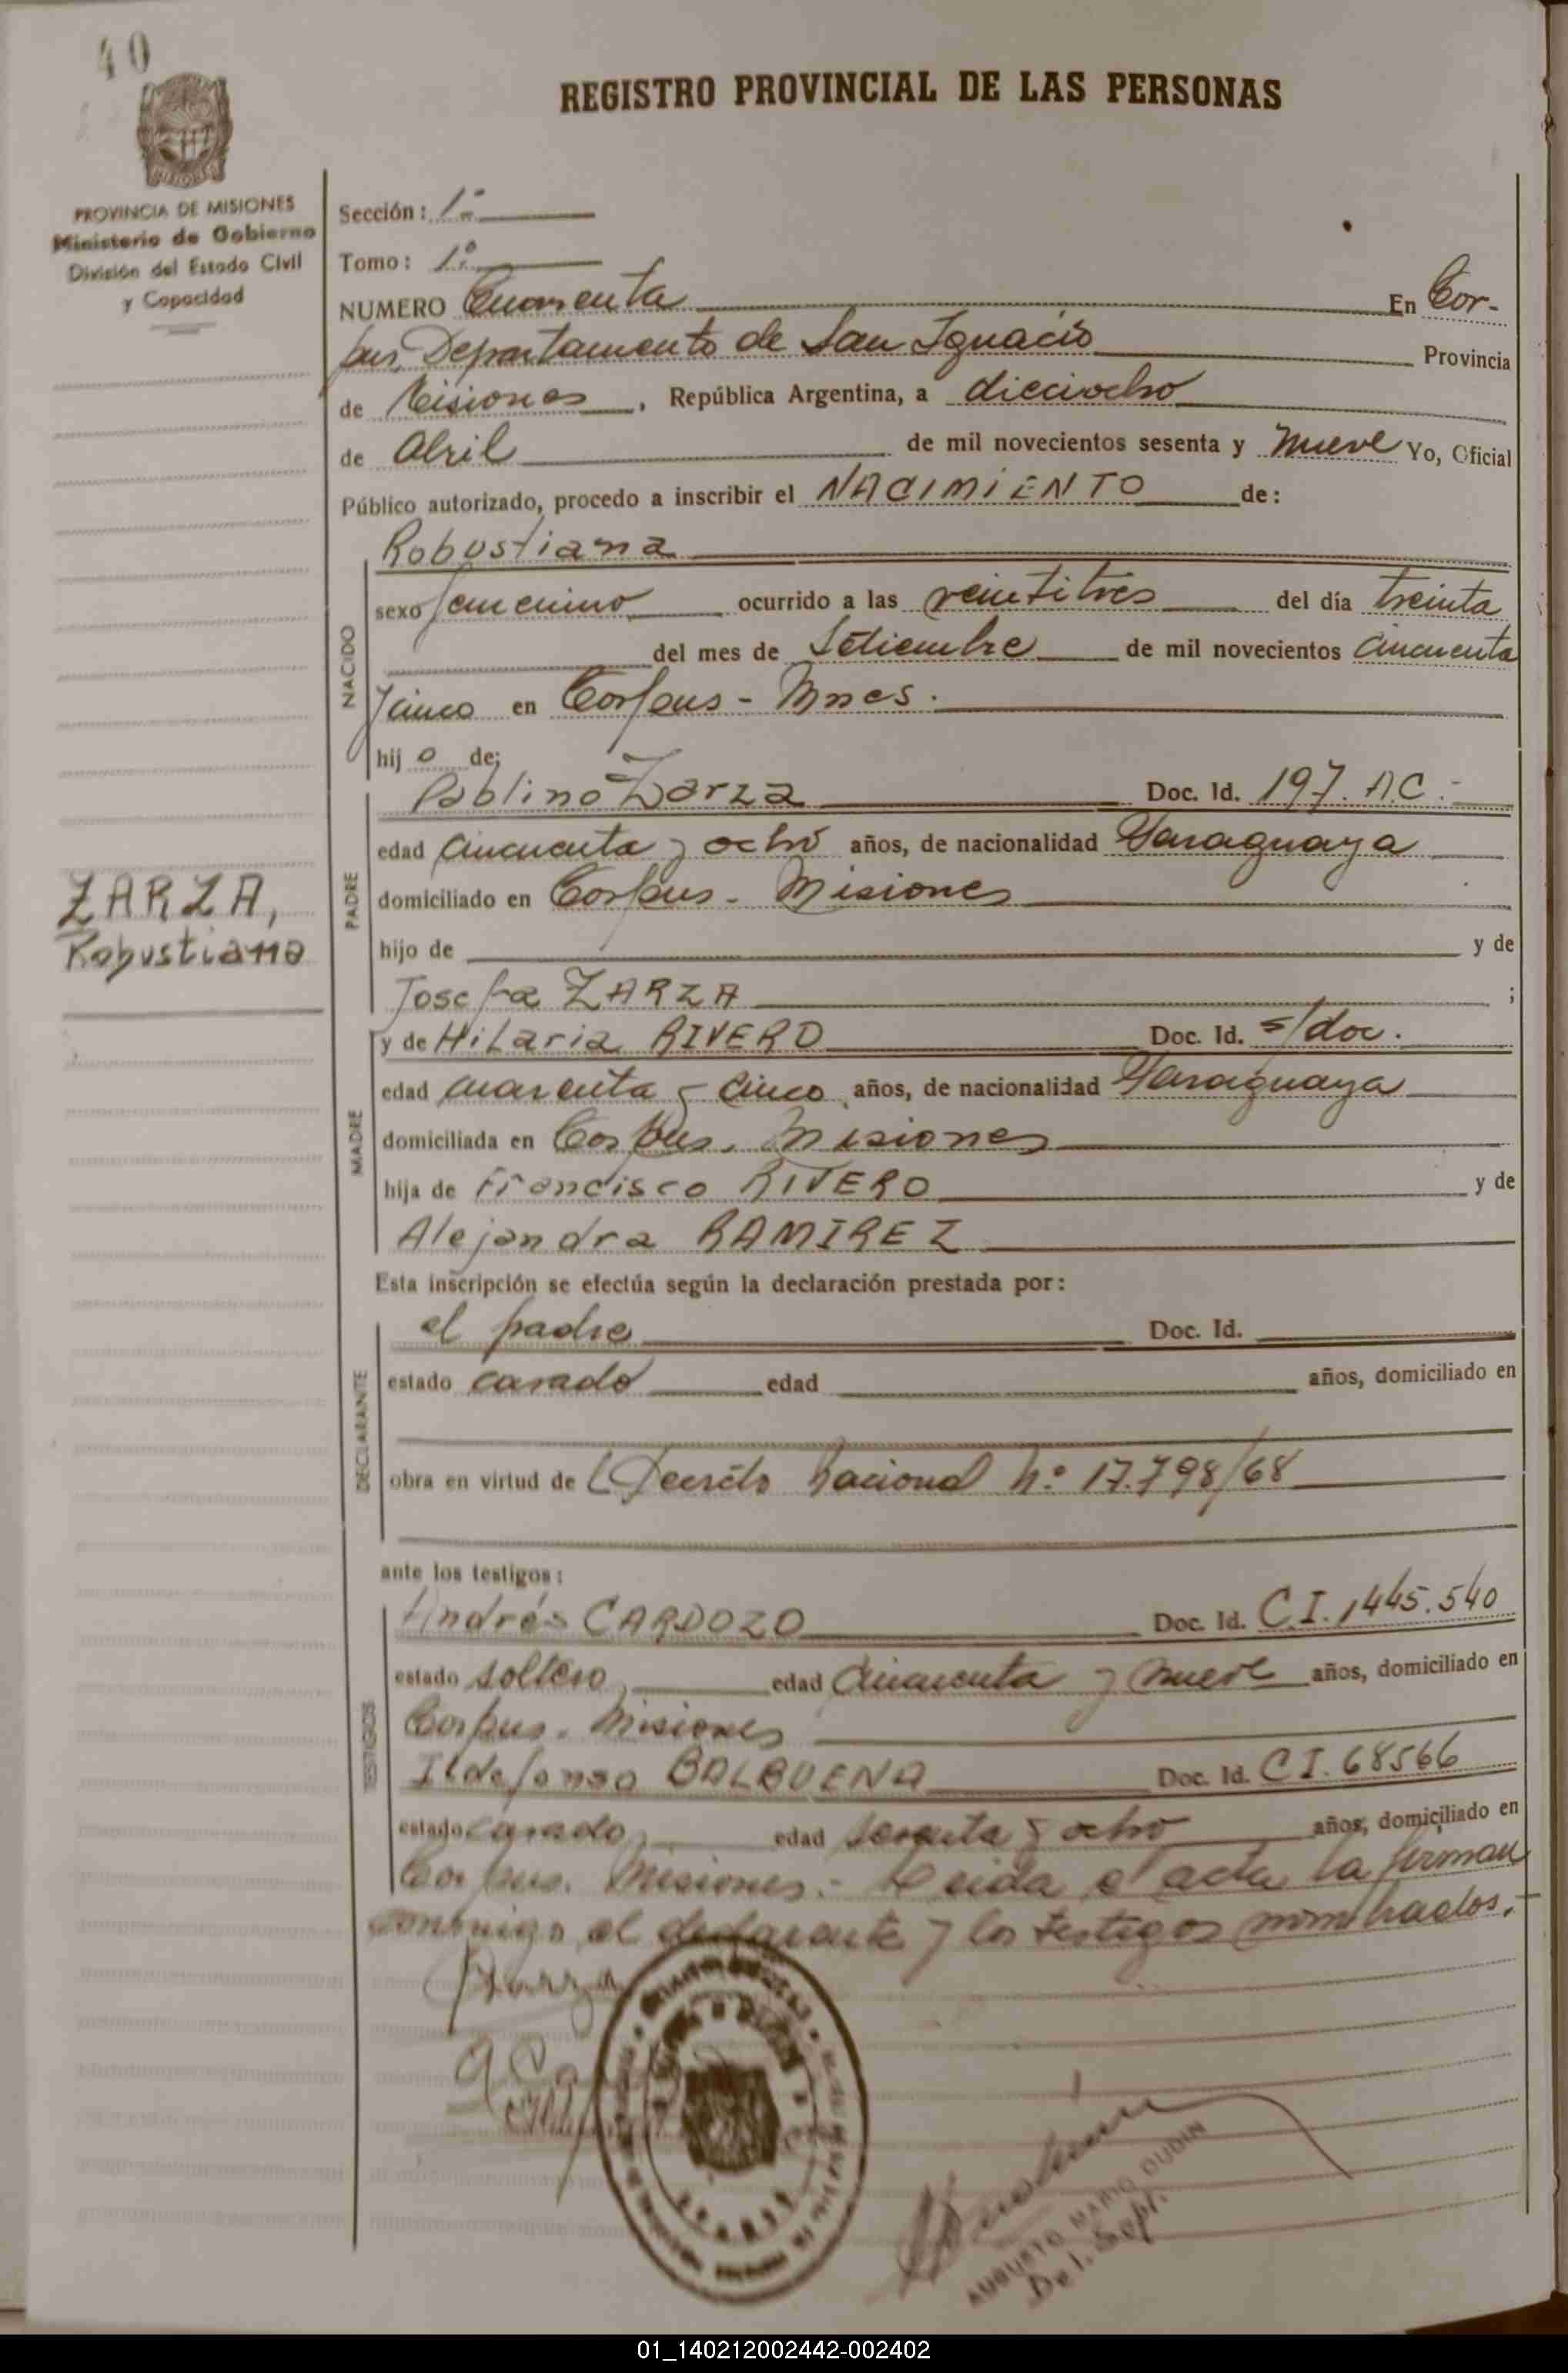 40
REGISTRO PROVINCIAL DE LAS PERSONAS
MISIONES
PROVINCIA DE MISIONES
Ministerio de Gobierno
División del Estado Civil
y Capacidad
Sección: 1º
Tomo: 1º
NUMERO Cuarenta En Cor-
pus, Departamento de San Ignacio Provincia
de Misiones, República Argentina, a dieciocho
de Abril de mil novecientos sesenta y nueve Yo, Oficial
Público autorizado, procedo a inscribir el NACIMIENTO de:
Robustiana
NACIDO
sexo femenino ocurrido a las veintitres del día treinta
del mes de Setiembre de mil novecientos cincuenta
y cinco en Corpus - Mnes.
hij o de;
Poblino Zarza Doc. Id. 197. A.C.-
PADRE
edad cincuenta y ocho años, de nacionalidad Paraguaya
domiciliado en Corpus - Misiones
hijo de y de
Josefa ZARZA ;
ZARZA,
Robustiana
y de Hilaria RIVERO Doc. Id. s/doc.
MADRE
edad cuarenta y cinco años, de nacionalidad Paraguaya
domiciliada en Corpus. Misiones
hija de Francisco RIVERO y de
Alejandra RAMIREZ
Esta inscripción se efectúa según la declaración prestada por:
el padre Doc. Id.
DECLARANTE
estado casado edad años, domiciliado en
obra en virtud de Decreto Nacional Nº 17.798/68
ante los testigos:
TESTIGOS
Andrés CARDOZO Doc. Id. C.I. 1445.540
estado soltero, edad cincuenta y nueve años, domiciliado en
Corpus. Misiones
Ildefonso BALBUENA Doc. Id. C I. 68566
estado casado, edad sesenta y ocho años, domiciliado en
Corpus. Misiones.- Leida el acta la firman
conmigo el declarante y los testigos nombrados.-
AUGUSTO MARIO DUDIN